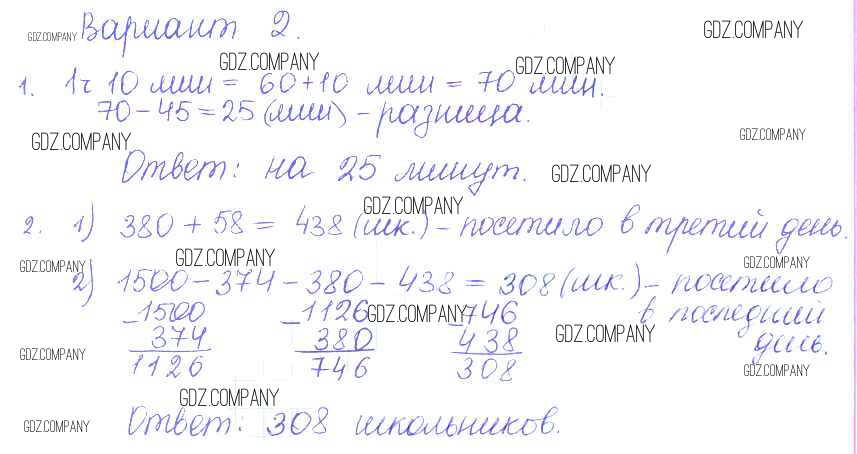 GDZ.COMPANY Вариант 2. GDZ.COMPANY
GDZ.COMPANY GDZ.COMPANY
1. 1ч 10 мин = 60+10 мин = 70 мин.
70 - 45 = 25 (мин) - разница.
GDZ.COMPANY GDZ.COMPANY
Ответ: на 25 минут. GDZ.COMPANY
GDZ.COMPANY
2. 1) 380 + 58 = 438 (шк.) - посетило в третий день.
GDZ.COMPANY GDZ.COMPANY GDZ.COMPANY
2) 1500 - 374 - 380 - 438 = 308 (шк.) - посетило
_1500 _1126 GDZ.COMPANY _746 в последний
374 380 438 GDZ.COMPANY день.
GDZ.COMPANY 1126 746 308 GDZ.COMPANY
GDZ.COMPANY
GDZ.COMPANY Ответ: 308 школьников.